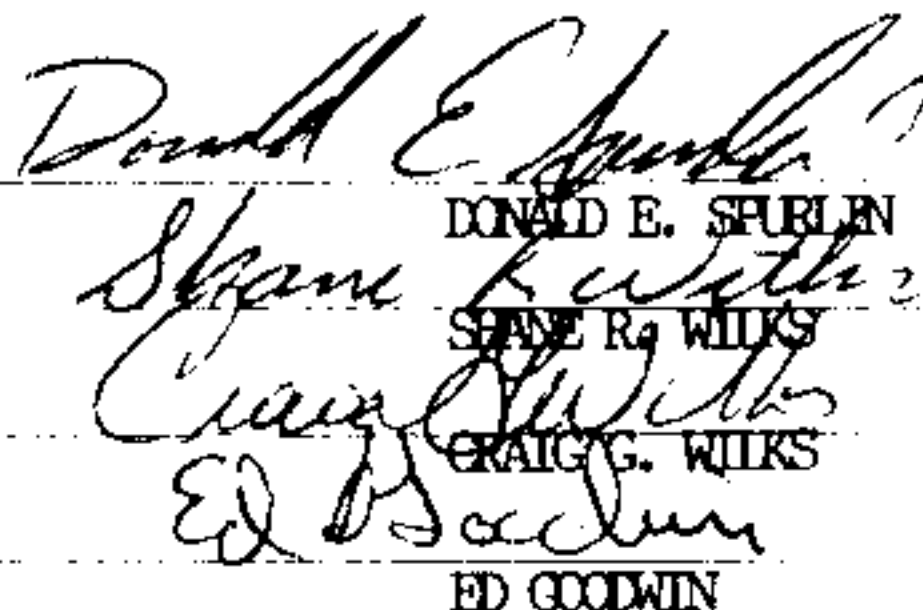 Donald E Spurlin
DONALD E. SPURLIN
Shane R Wilks
SHANE R. WILKS
Craig G Wilks
CRAIG G. WILKS
Ed Goodwin
ED GOODWIN